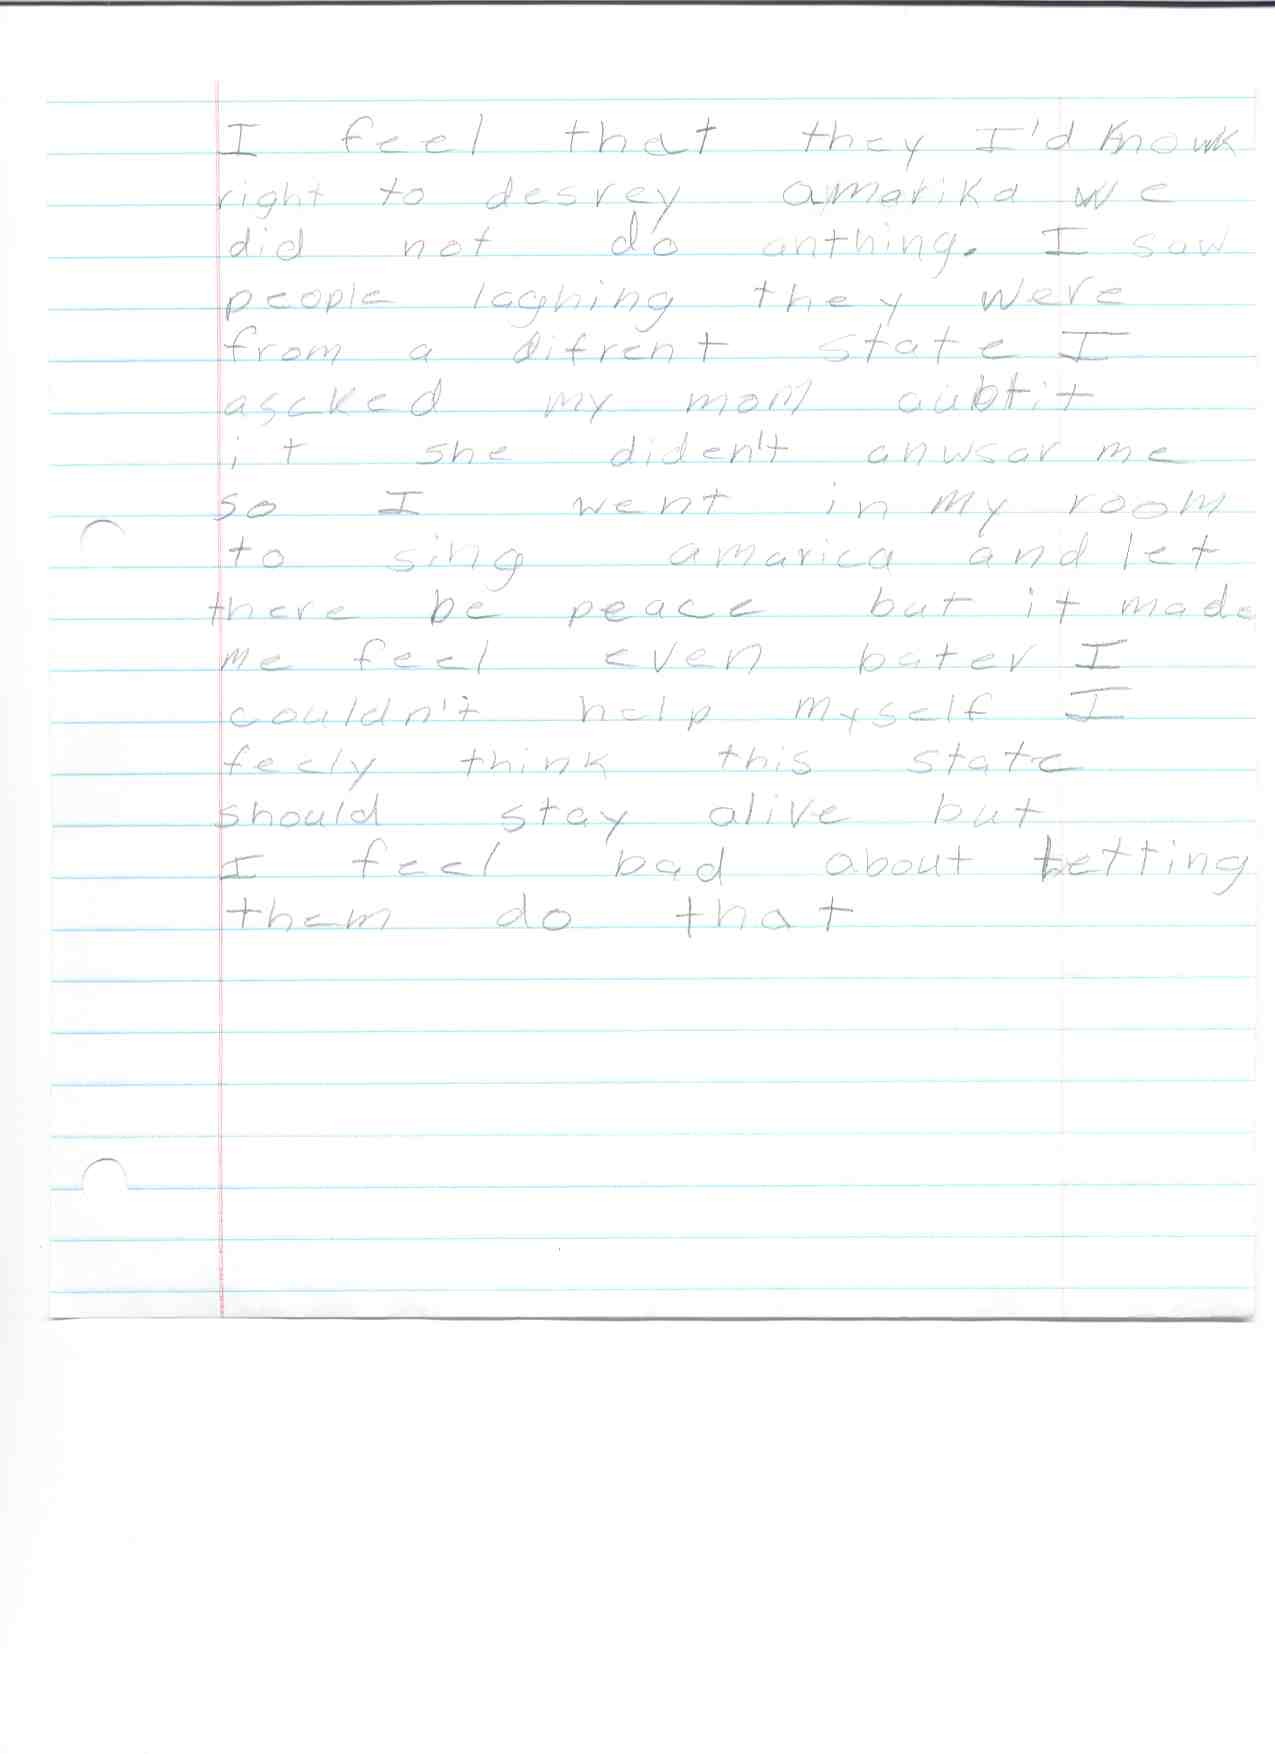 I feel that they I'd know
right to desrey amarika we
did not do anthing. I saw
people laghing they were
from a difrent state I
ascked my mom aubtit
it she diden't anwsar me
so I went in my room
to sing amarica and let
there be peace but it made
me feel even bater I
couldn't help myself I
feely think this state
should stay alive but
I feel bad about letting
them do that